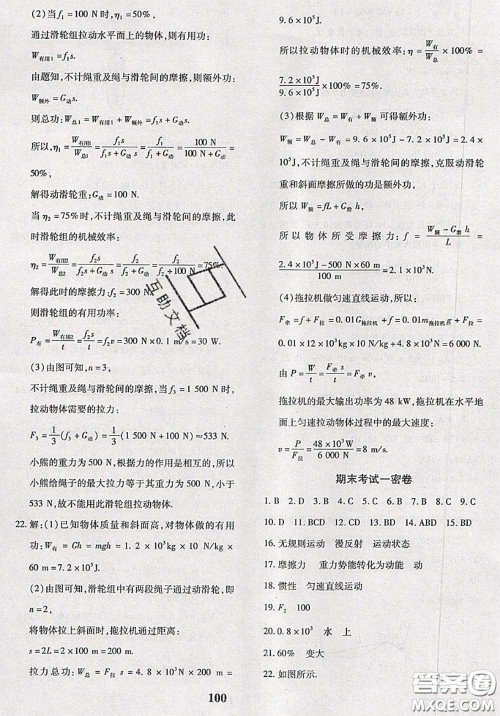 (2)当 f₁=100 N 时,η₁=50%,
通过滑轮组拉动水平面上的物体,则有用功:
W有用1=f₁s
由题知,不计绳重及绳与滑轮间的摩擦,则额外功:
W额外=G动s
则总功:W总1=W有用1+W额外=f₁s+G动s
所以,η₁=W有用1/W总1=f₁s/(f₁s+G动s)=f₁/(f₁+G动)=100 N/(100 N+G动)=
50%,
解得动滑轮重:G动=100 N.
当 η₂=75%时,不计绳重及绳与滑轮间的摩擦,此
时滑轮组的机械效率:
η₂=W有用2/W总2=f₂s/(f₂s+G动s)=f₂/(f₂+G动)=f₂/(f₂+100 N)=75%,
解得此时的摩擦力:f₂=300 N,
P有=W有用2/t=f₂s/t=f₂v=300 N×0.1 m/s=30 W.
(3)由图可知,n=3,
不计绳重及绳与滑轮间的摩擦,当 f₃=1 500 N时,
拉动物体需要的拉力:
F₃=1/3(f₃+G动)=1/3(1 500 N+100 N)≈533 N.
小熊的重力为 500 N,根据力的作用是相互的,所以
小熊给绳子的最大拉力等于其重力为 500 N,小于
533 N,故不能用此滑轮组拉动物体.
22.解:(1)已知物体质量和斜面高,对物体做的有用
功:W有=Gh=mgh=1.2×10³kg×10 N/kg×
60 m=7.2×10⁵J.
(2)由图可知,滑轮组中有两段绳子通过动滑轮,即
n=2,
将物体拉上斜面时,拖拉机移动的距离:
s=2L=2×100 m=200 m,
拉力总功:W总=F拉s=4.8×10³N×200 m=
9.6×10⁵J
所以拉动物体时的机械效率:η=W有/W总×100%=
7.2×10⁵J/9.6×10⁵J×100%=75%.
(3)根据 W总=W有+W额 可得额外功:
W额=W总-W有=9.6×10⁵J-7.2×10⁵J=2.4
×10⁵J,不计绳重及绳与滑轮间的摩擦,克服动滑轮
重和斜面摩擦所做的功是额外功,
即:W额=fL+G滑h,
所以物体所受摩擦力:f=(W额-G滑h)/L=
(2.4×10⁵J-500 N×60 m)/100 m=2.1×10³N.
(4)拖拉机做匀速直线运动,
F牵=f+F拉=0.01G拖拉机+F拉=0.01m拖拉机g+F拉=
0.01×12×10³kg×10 N/kg+4.8×10³N=6 000 N.
因为 P=W/t=Fs/t=Fv,
拖拉机的最大输出功率为 48 kW,拖拉机在水平地
面上匀速拉动物体过程中的最大速度:
v=P/F牵=48×10³W/6 000N=8 m/s.
期末考试一密卷
1.B 2.D 3.C 4.D 5.A 6.B 7.B 8.B 9.C
10.D 11.BCD 12.CD 13.BD 14.ABD 15.BD
16.无规则运动 漫反射 运动状态
17.摩擦力 重力势能转化为动能 动
18.惯性 匀速直线运动
19.F₂ 100
20.0.8×10³ 水 上
21.60% 变大
22.如图所示.
100
互助文档
答案圈
MXQE.COM